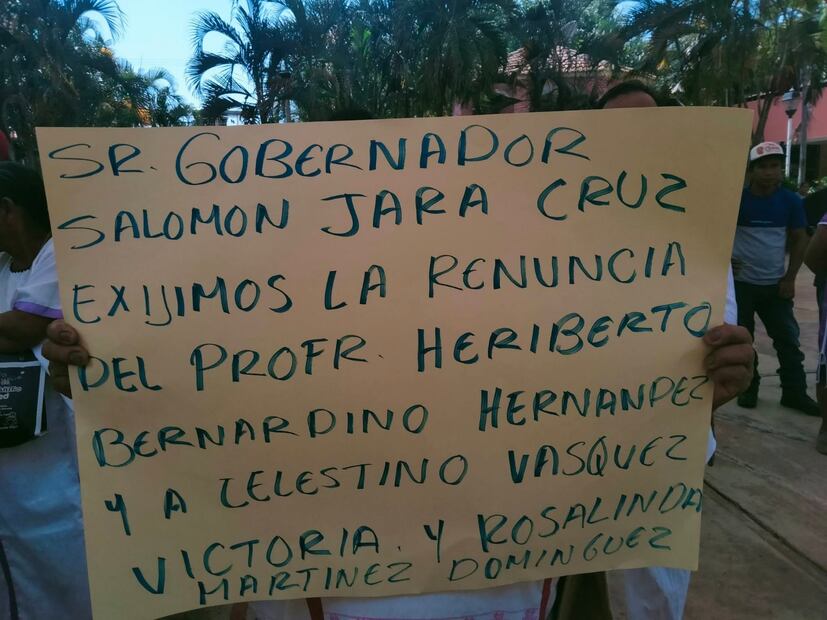 SR. GOBERNADOR
SALOMON JARA CRUZ
EXIJIMOS LA RENUNCIA
DEL PROFR. HERIBERTO
BERNARDINO HERNANDEZ
Y A CELESTINO VASQUEZ
VICTORIA. Y ROSALINDA
MARTINEZ DOMINGUEZ